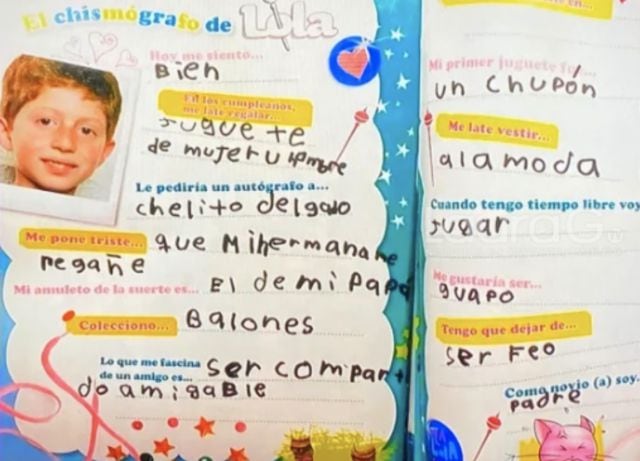 El chismógrafo de Lola
Hoy me siento...
Bien
En los cumpleaños,
me late regalar...
Jugue te
de mujer u hombre
Le pediría un autógrafo a...
chelito delgado
Me pone triste... que Mi hermana me
regañe
Mi amuleto de la suerte es... El de mi Papá
Colecciono... Balones
Lo que me fascina
de un amigo es... ser compar t
do amigable
en...
Mi primer juguete fu...
un chupón
Me late vestir...
a la moda
Cuando tengo tiempo libre voy
Jugar
Me gustaría ser...
guapo
Tengo que dejar de...
ser Feo
Como novio (a) soy...
padre